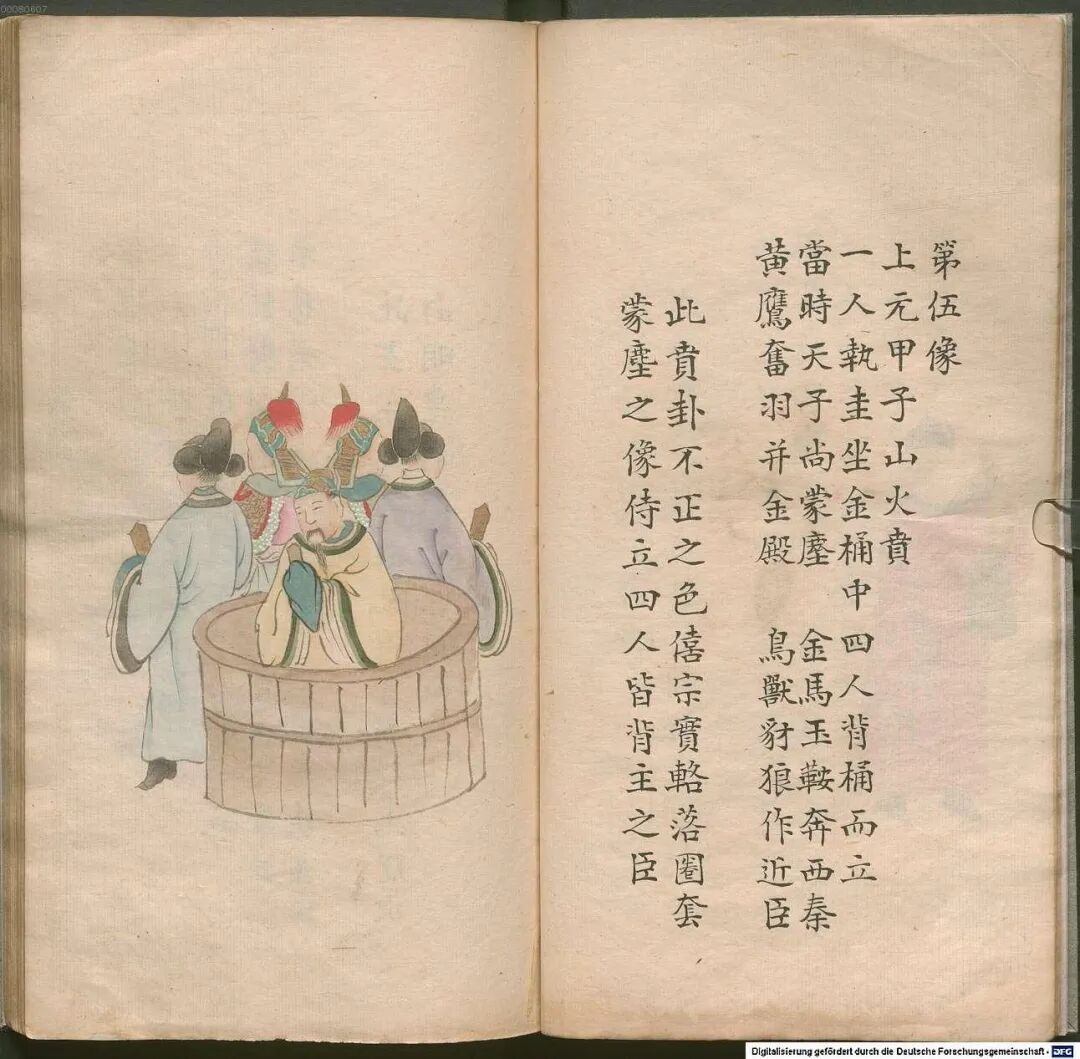 00080607
第伍像
上元甲子山火賁
一人執圭坐金桶中四人背桶而立
當時天子尚蒙塵 金馬玉鞍奔西秦
黃鷹奮羽并金殿 鳥獸豺狼作近臣
此賁卦不正之色僖宗實輅落圈套
蒙塵之像侍立四人皆背主之臣
Digitalisierung gefördert durch die Deutsche Forschungsgemeinschaft - DFG